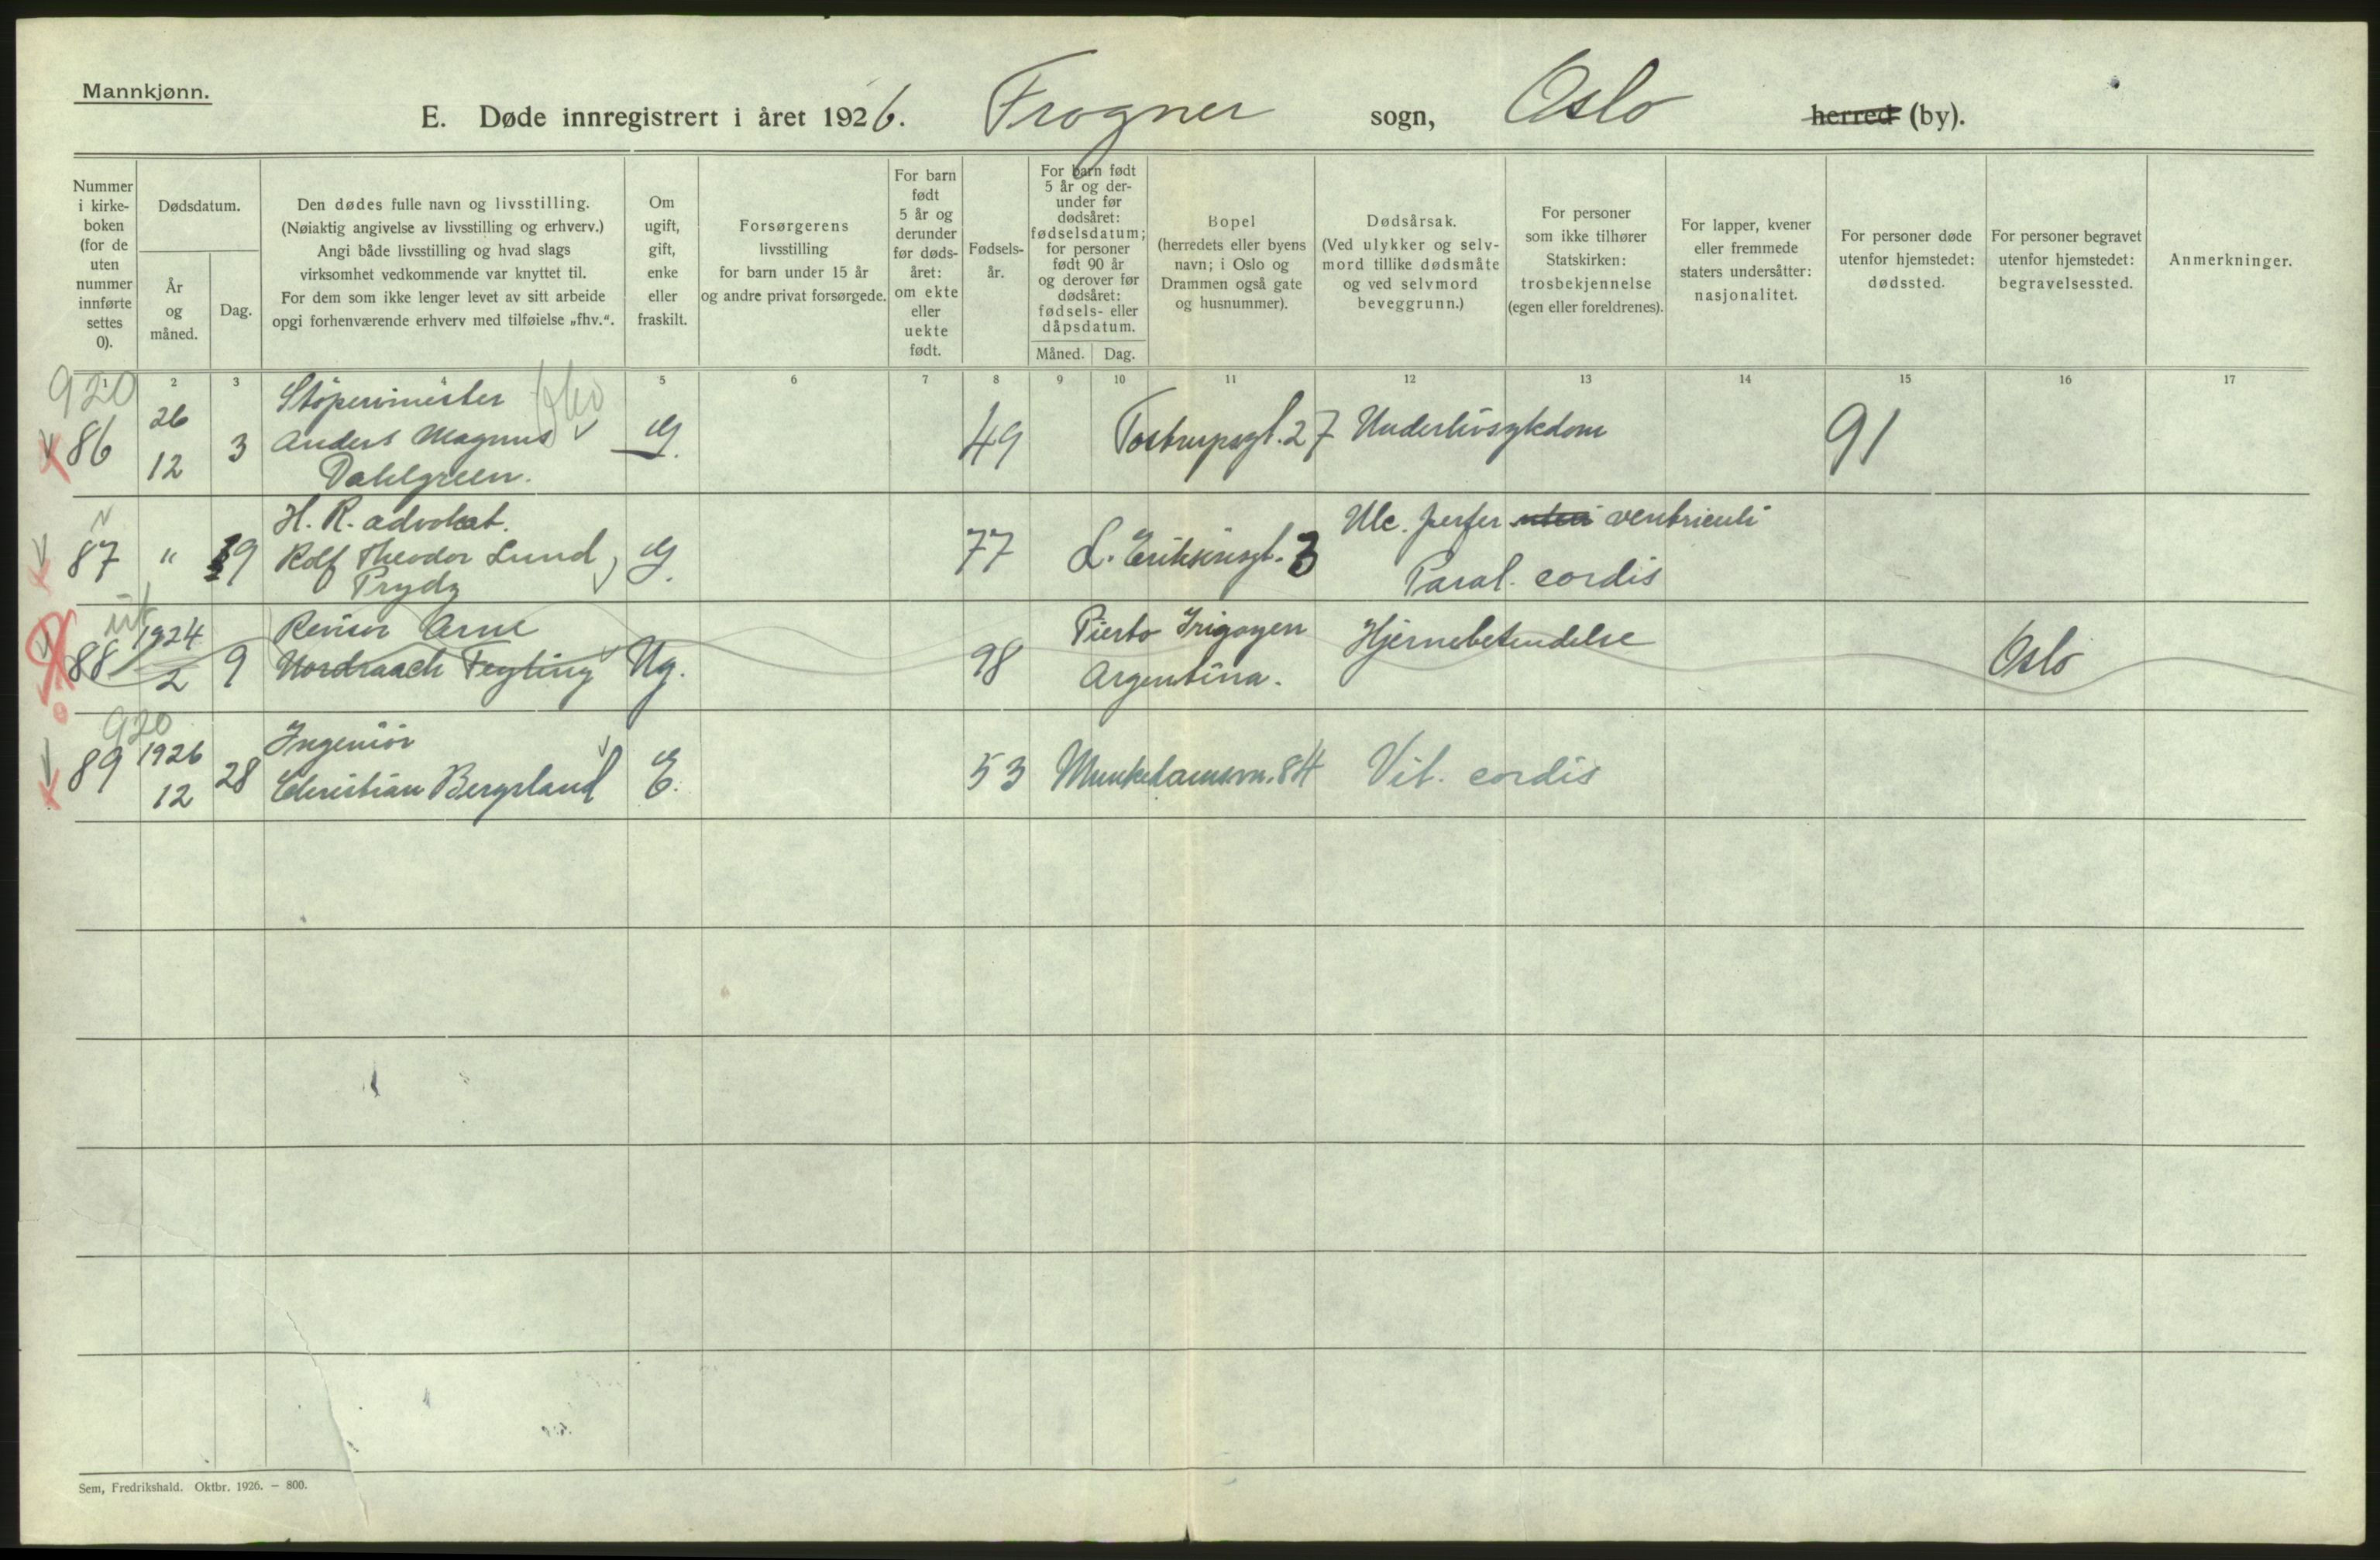 Mannkjønn.
E. Døde innregistrert i året 1926. Frogner sogn, Oslo herred (by).
Nummer i kirke-boken (for de uten nummer innførte settes 0).
Dødsdatum.
År og måned.
Dag.
Den dødes fulle navn og livsstilling.
(Nøiaktig angivelse av livsstilling og erhverv.)
Angi både livsstilling og hvad slags
virksomhet vedkommende var knyttet til.
For dem som ikke lenger levet av sitt arbeide
opgi forhenværende erhverv med tilføielse „fhv.“.
Om ugift, gift, enke eller fraskilt.
Forsørgerens
livsstilling
for barn under 15 år
og andre privat forsørgede.
For barn født 5 år og derunder før døds-året: om ekte eller uekte født.
Fødsels-år.
For barn født
5 år og der-
under før
dødsåret:
fødselsdatum;
for personer
født 90 år
og derover før
dødsåret:
fødsels- eller
dåpsdatum.
Måned. Dag.
Bopel
(herredets eller byens
navn; i Oslo og
Drammen også gate
og husnummer).
Dødsårsak.
(Ved ulykker og selv-
mord tillike dødsmåte
og ved selvmord
beveggrunn.)
For personer
som ikke tilhører
Statskirken:
trosbekjennelse
(egen eller foreldrenes).
For lapper, kvener
eller fremmede
staters undersåtter:
nasjonalitet.
For personer døde
utenfor hjemstedet:
dødssted.
For personer begravet
utenfor hjemstedet:
begravelsessted.
Anmerkninger.
1 2 3 4 5 6 7 8 9 10 11 12 13 14 15 16 17
920
86 26 12 3 Støperimester
Anders Magnus
Dahlgreen. G. 49 Tostrupsgt. 27 Underlivsykdom 91
N
87 " 19 H. R. advokat.
Rolf Theodor Lund
Prydz G. 77 L. Eriksensgt. 3 Ulc. perfor ventriculi
Paral. cordis
ut
88 1924 2 9 Revisor Arne
Nordraach Fegling Ug. 98 Pierto Irigoyen
Argentina. Hjernebetendelse Oslo
920
89 1926 12 28 Ingeniör
Christian Bergsland E. 53 Munkedamsvn. 84 Vit. cordis
Sem, Fredrikshald. Oktbr. 1926. – 800.